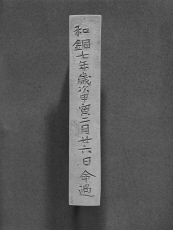 和銅七年歳次甲寅二月廿六日命過